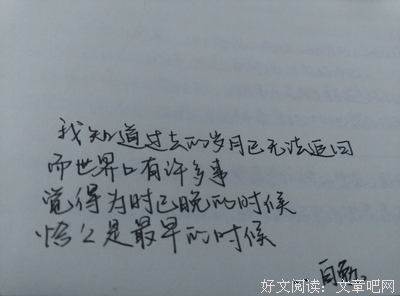 我知道过去的岁月已无法追回
而世界上有许多事
觉得为时已晚的时候
恰恰是最早的时候
自勉。
好文阅读：文章吧网